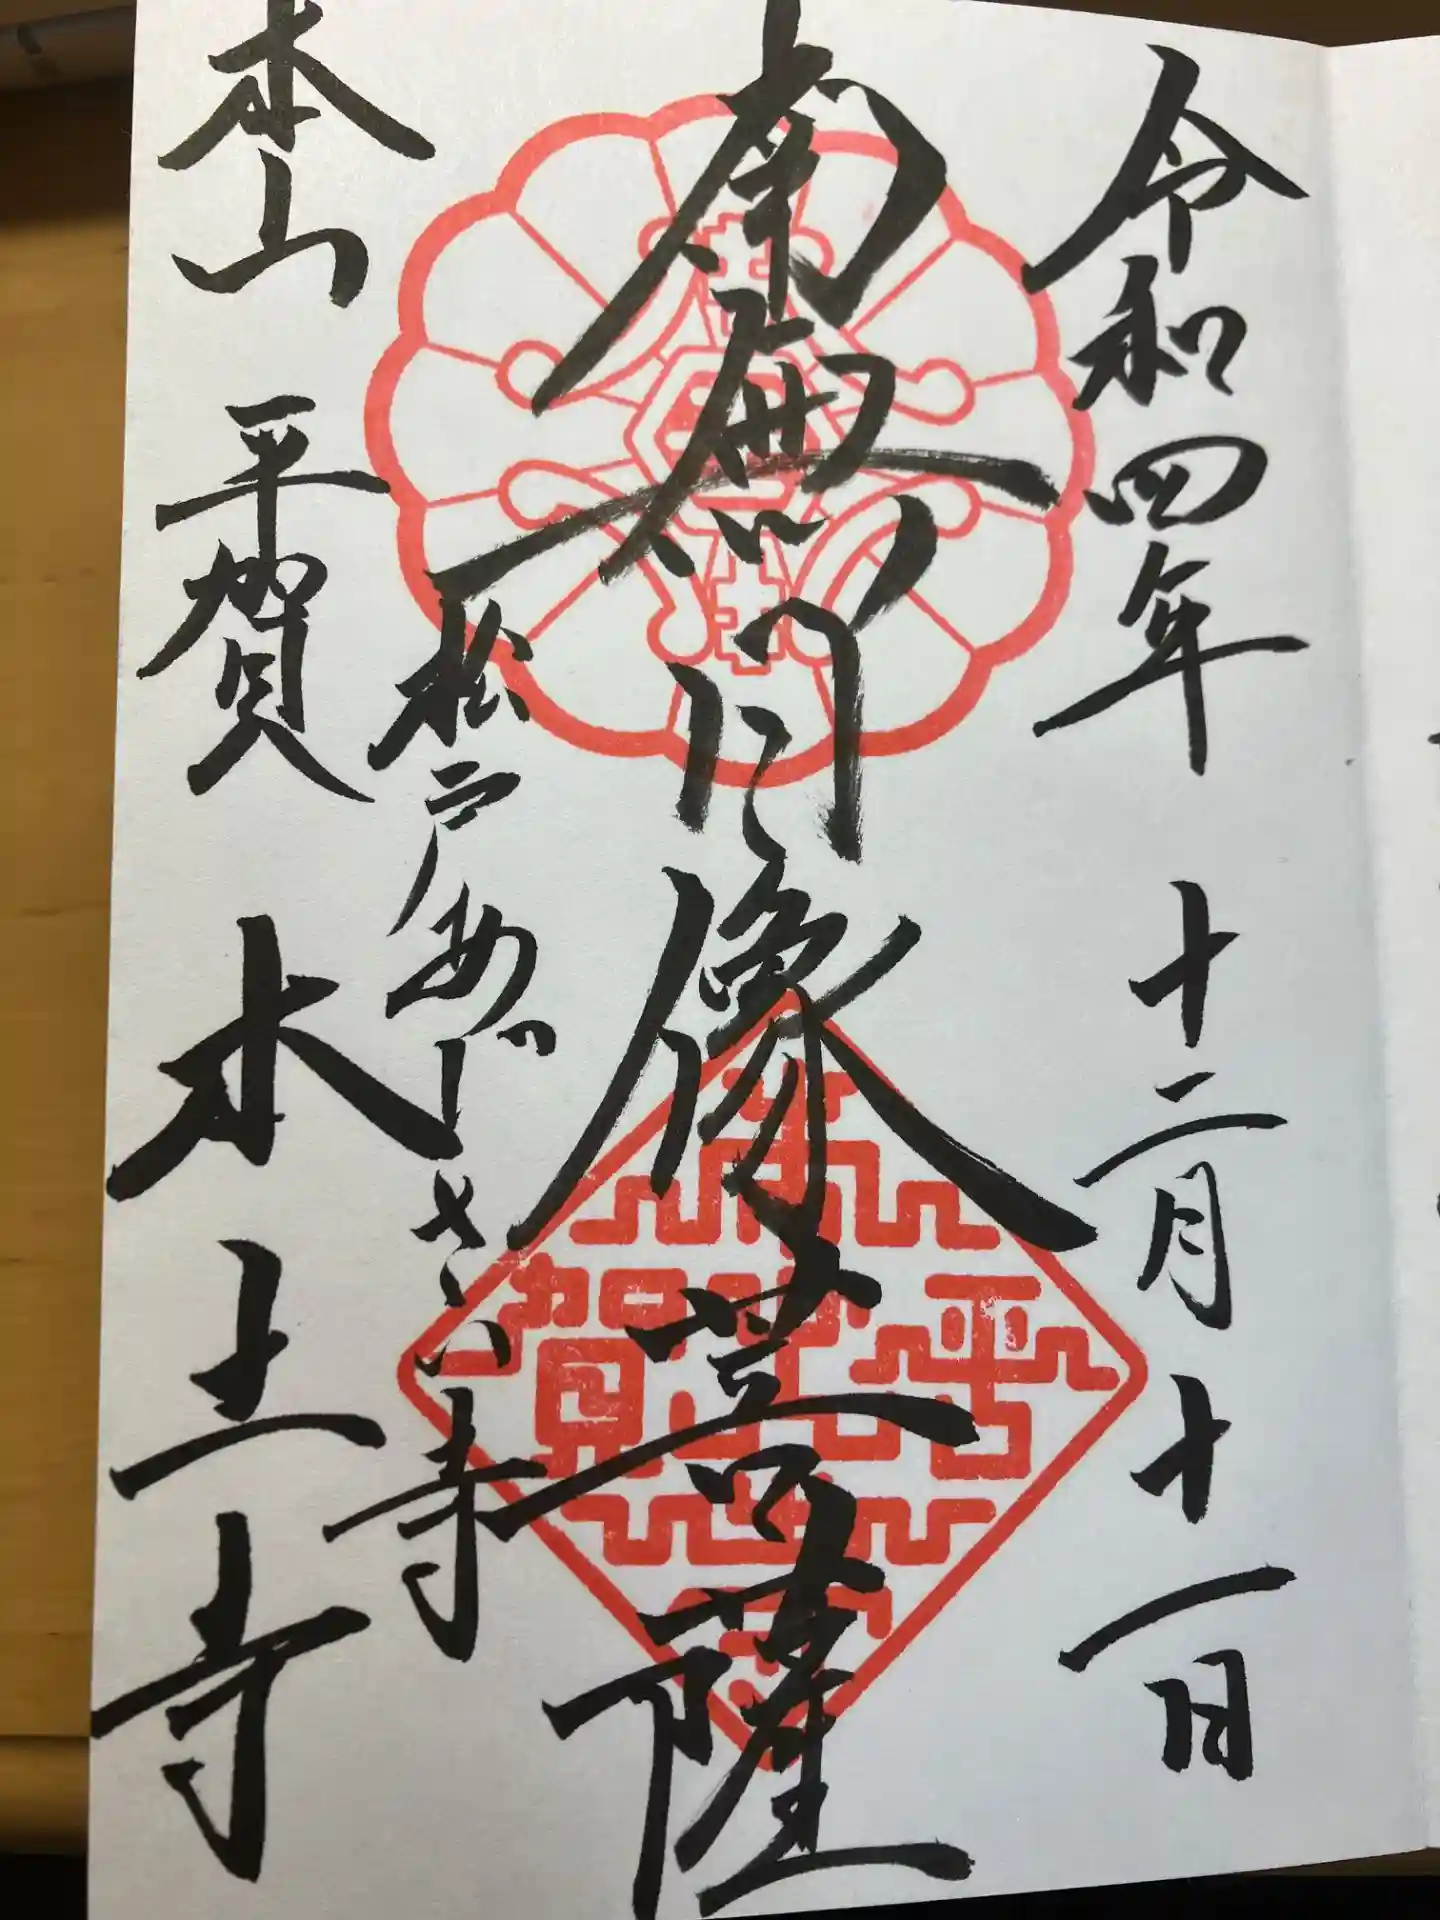 令和四年 十二月十一日
南無日像菩薩
松戸あじさい寺
本山 平賀 本土寺
平賀